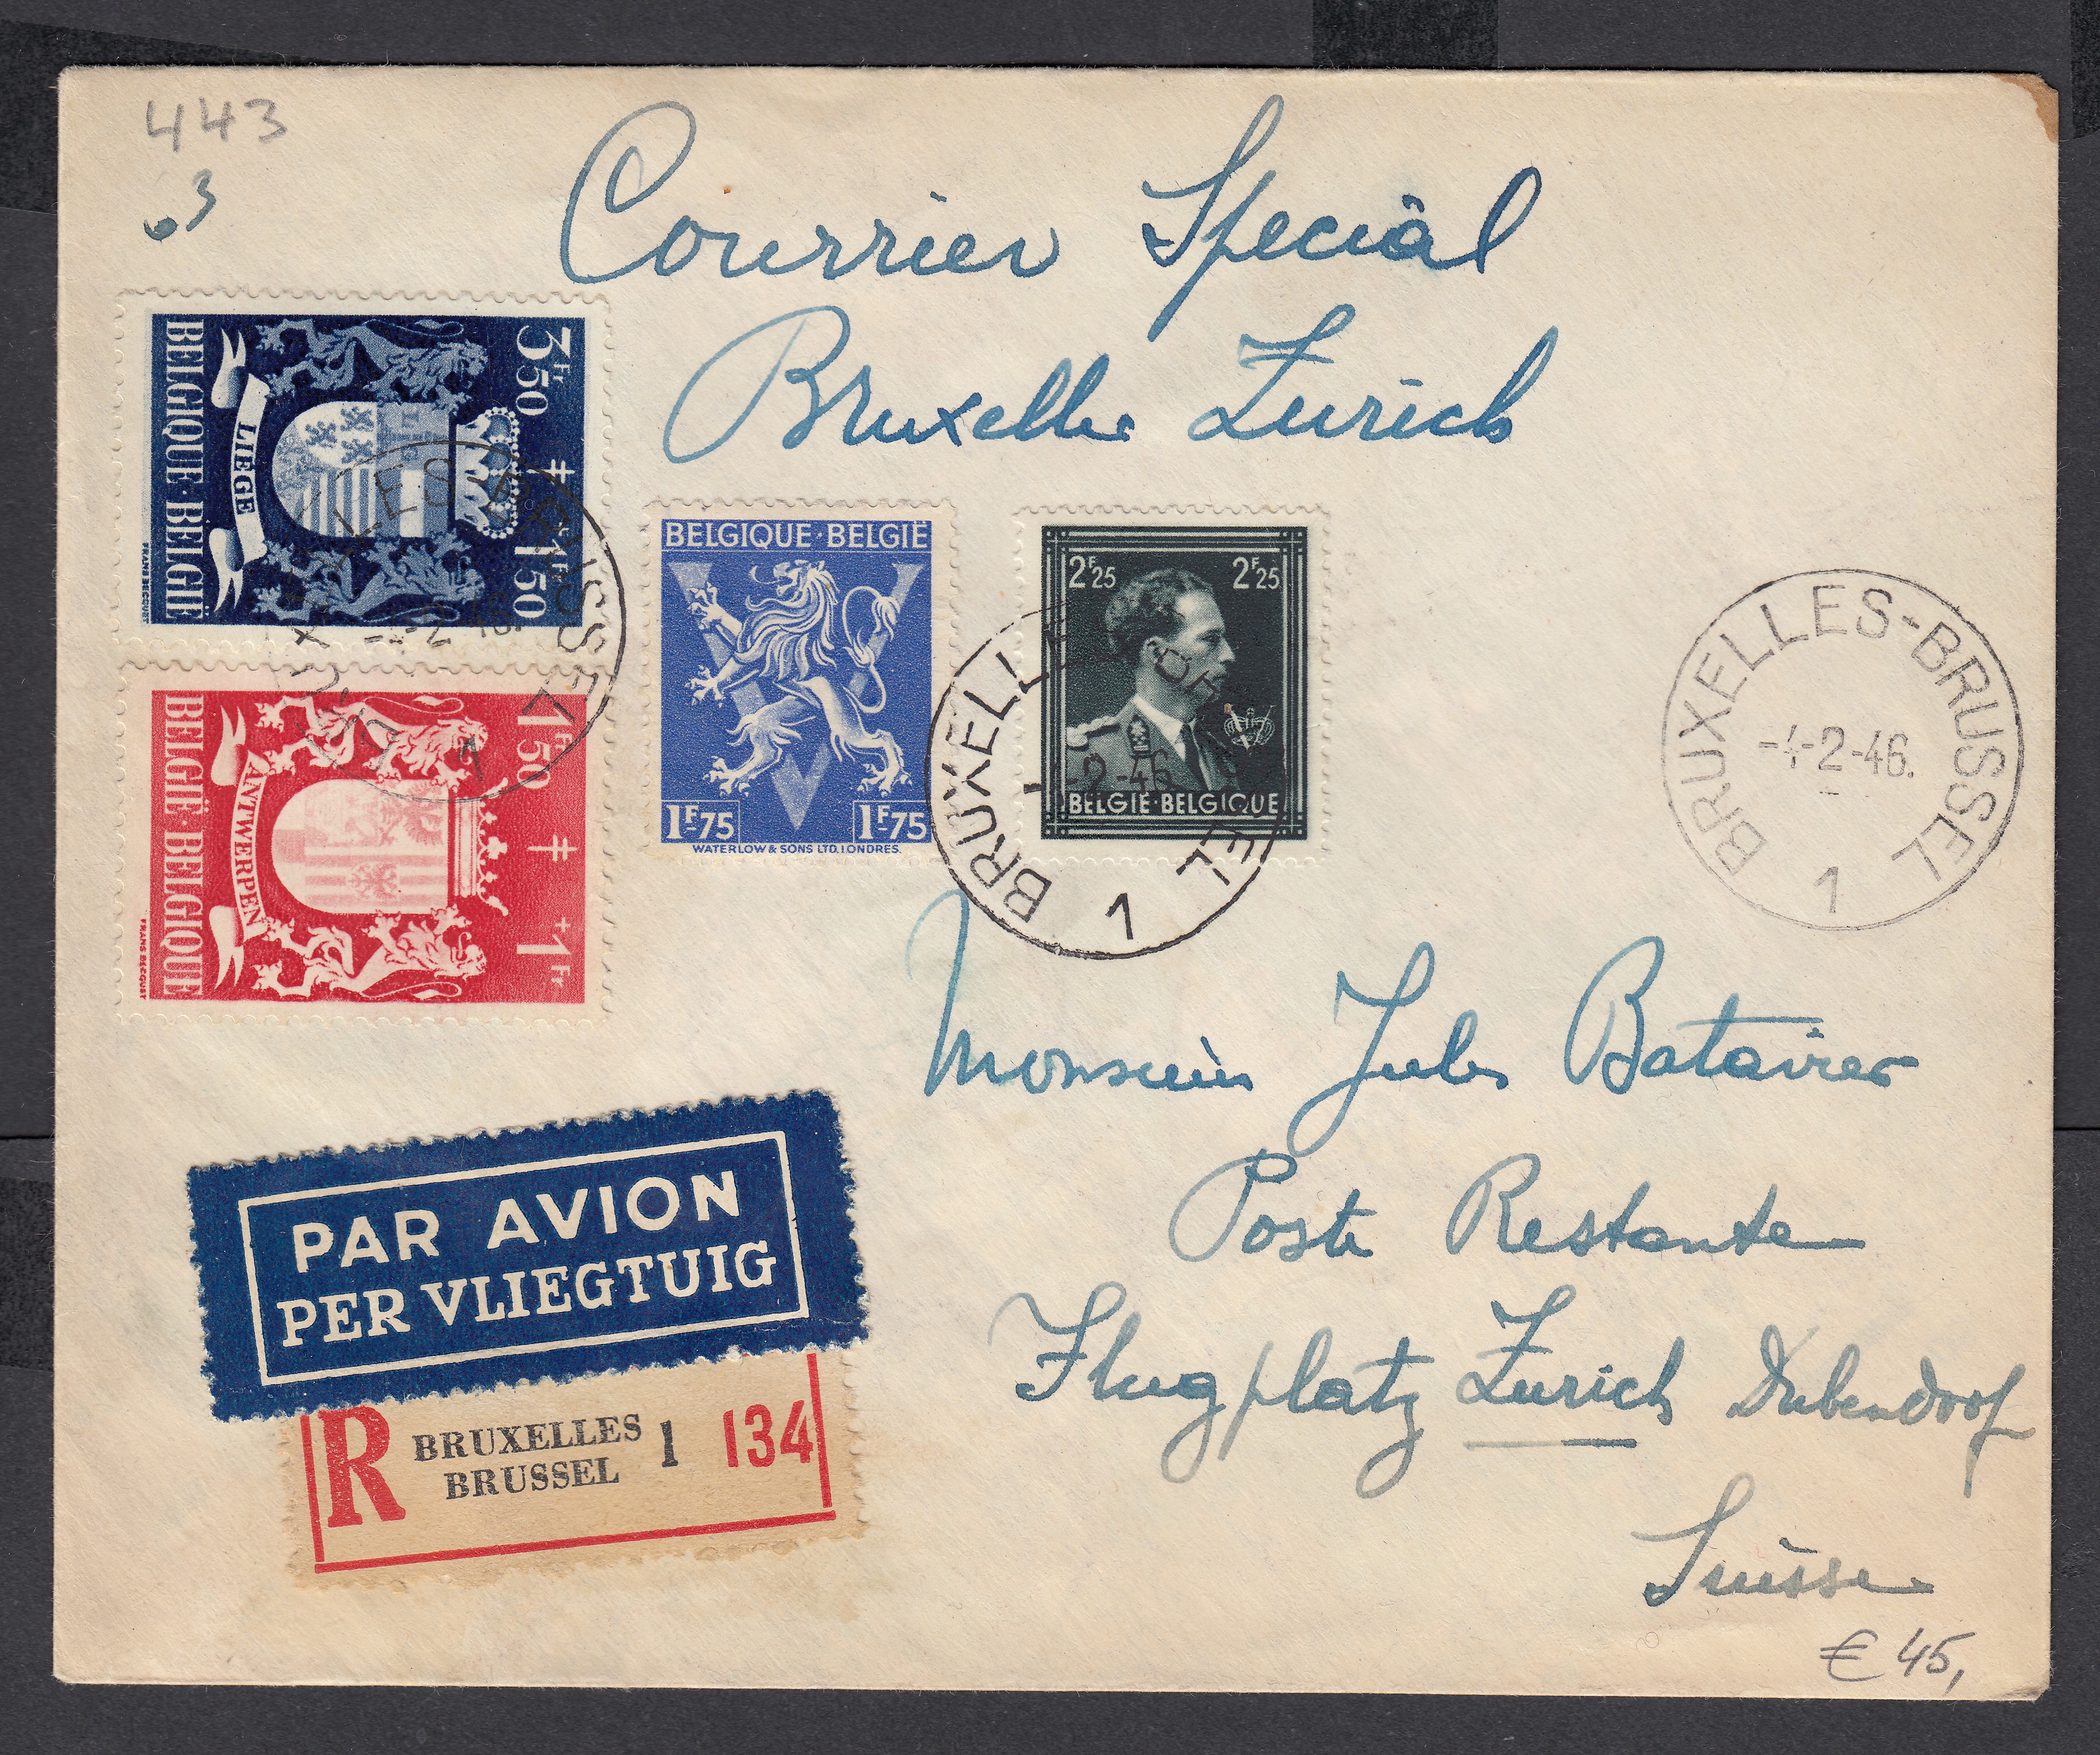 443
3
Courrier Special
Bruxelles Zurich
3Fr 50 + 1Fr 50
LIÈGE
BELGIQUE·BELGIË
FRANS DECQUST
1Fr 50 + 1Fr
ANTWERPEN
BELGIË·BELGIQUE
BELGIQUE·BELGIË
1F-75 1F-75
WATERLOW & SONS LTD. LONDRES.
2F25 2F25
BELGIE·BELGIQUE
BRUXELLES-BRUSSEL
-4-2-46.
1
BRUXELLES-BRUSSEL
-2-46
1
BRUXELLES-BRUSSEL
-4-2-46.
1
Monsieur Jules Batavier
Poste Restante
Flugplatz Zurich Dubendorf
Suisse
PAR AVION
PER VLIEGTUIG
R BRUXELLES 1 134
BRUSSEL
€ 45,